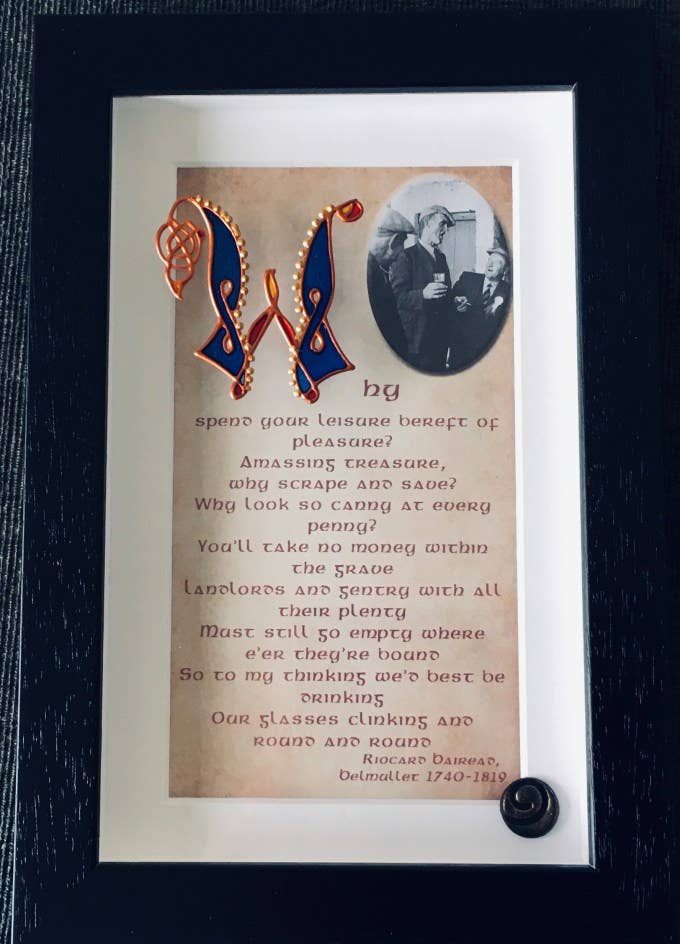 Why
spend your leisure bereft of
pleasure?
Amassing treasure,
why scrape and save?
Why look so canny at every
penny?
You'll take no money within
the grave
Landlords and gentry with all
their plenty
Must still go empty where
e'er they're bound
So to my thinking we'd best be
drinking
Our glasses clinking and
round and round
Riocard Bairead,
Belmullet 1740-1819